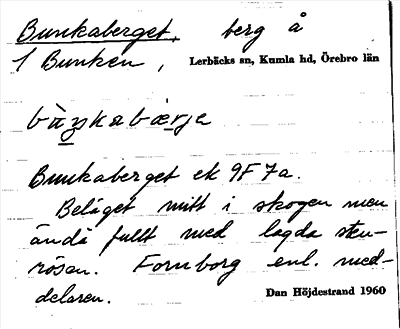 Bunkaberget, berg å
1 Bunken, Lerbäcks sn, Kumla hd, Örebro län
bùŋkabæ̀rja
Bunkaberget ek 9F7a.
Beläget mitt i skogen men
ändå fullt med lagda sten-
rösen. Fornborg enl. med-
delaren. Dan Höjdestrand 1960